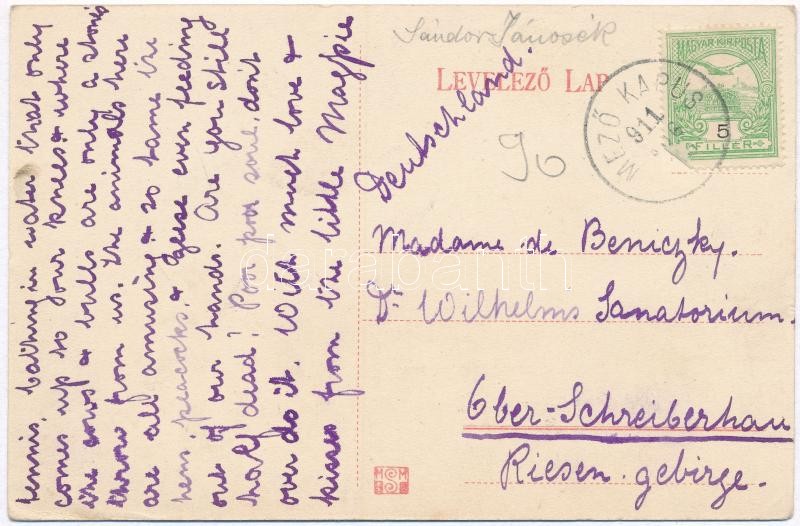 tennis, bathing in water that only
comes up to your knees & where
the cows & bulls are only a stones
throw from us. The animals here
are all amusing & so tame the
hens, peacocks, & geese even feeding
out of our hands. Are you still
half dead? Poor poor soul, don't
over do it. With much love &
kisses from the little Magpie
Sándor Jánosék
LEVELEZŐ LAP
Deutschland.
90
MAGYAR KIR. POSTA
5
FILLÉR
MEZŐ KAPUS
911
Madame de Beniczky.
Dr Wilhelms Sanatorium.
Ober-Schreiberhau
Riesen-gebirge.
darabanth